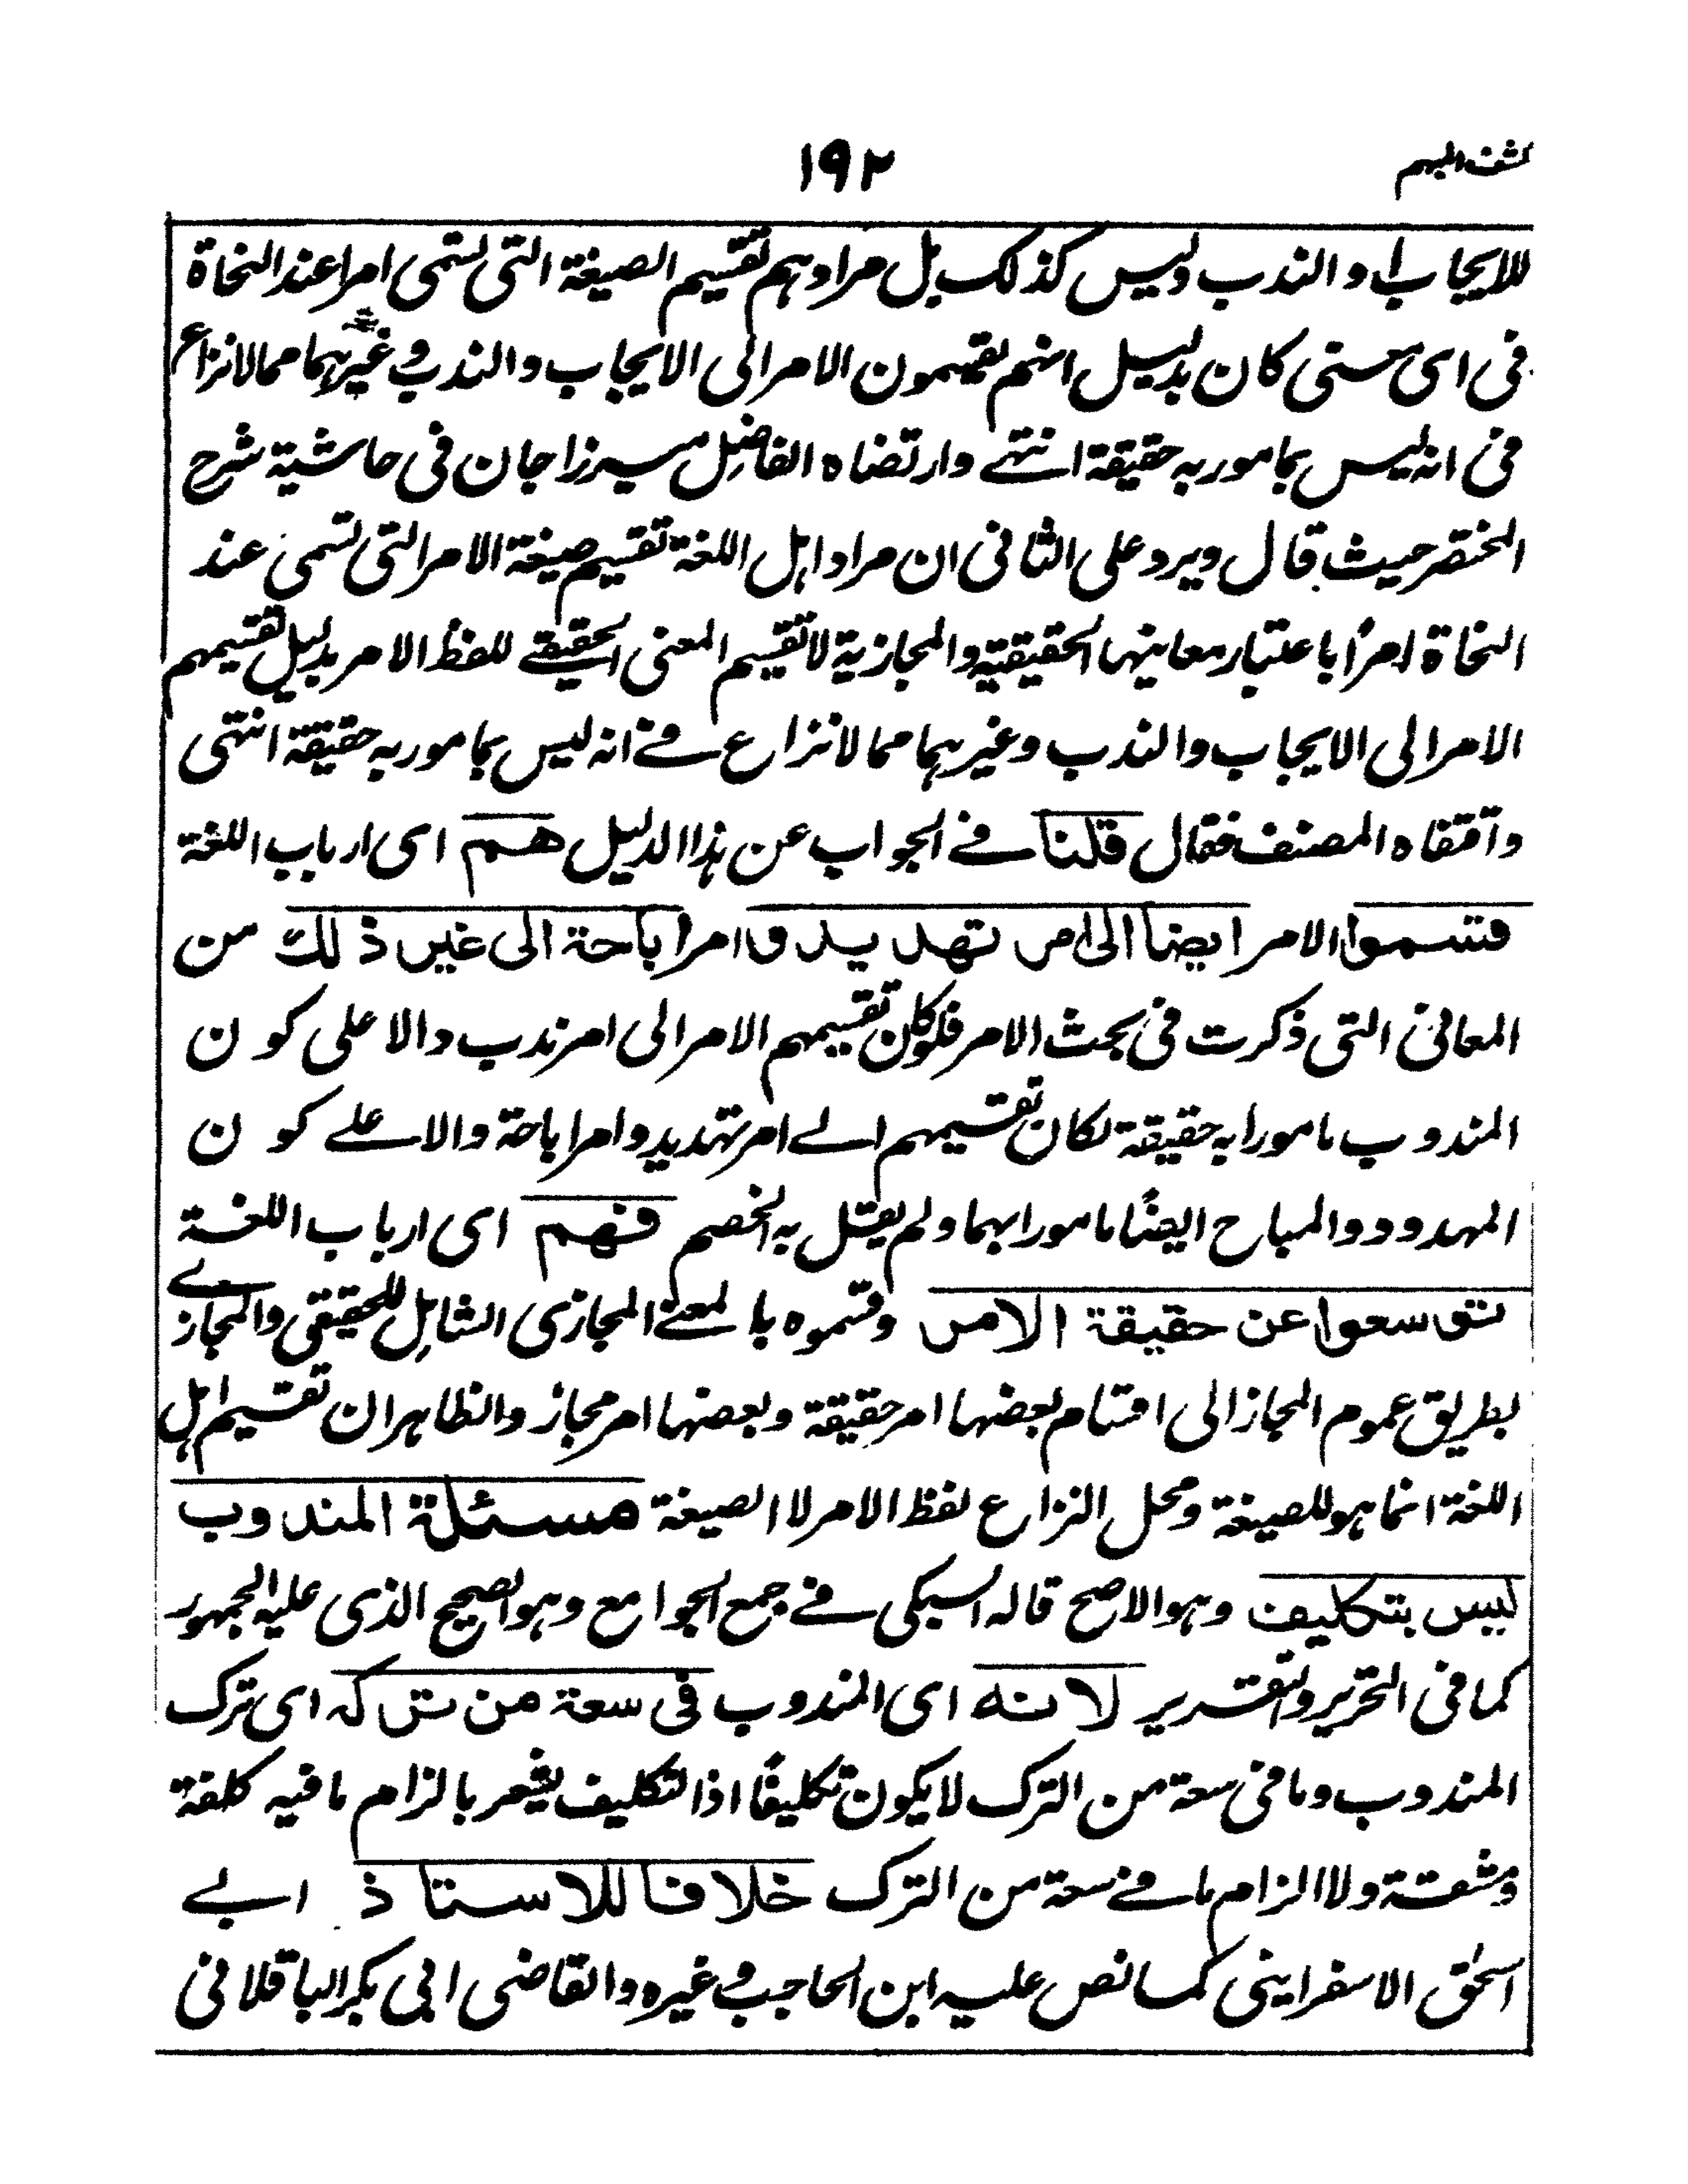 كشف المبهم
١٩٢
للايجاب او الندب وليس كذلك بل مرادهم تقسيم الصيغة التى تسمى امرا عند النحاة
فى اى معنى كان بدليل انهم يقسمون الامر الى الايجاب والندب وغيرهما مما لا نزاع
فى انه ليس بمامور به حقيقة انتهے وارتضاه الفاضل ميرزاجان فى حاشية شرح
المختصر حيث قال ويرد على الثانى ان مراد اهل اللغة تقسيم صيغة الامر التى تسمى عند
النحاة امرًا باعتبار معانيها الحقيقية والمجازية لا تقسيم المعنى الحقيقے للفظ الامر بدليل تقسيمهم
الامر الى الايجاب والندب وغيرهما مما لا نزاع فے انه ليس بمامور به حقيقة انتهى
واقتفاه المصنف فقال قلنا فے الجواب عن هذا الدليل هم اى ارباب اللغة
قسموا الامر ايضا الى امر تهديد و امر اباحة الى غير ذلك من
المعانى التى ذكرت فى بحث الامر فلو كان تقسيمهم الامر الى امر ندب دالا على كون
المندوب مامورا به حقيقة لكان تقسيمهم الے امر تهديد وامر اباحة دالا علے كون
المهدد والمباح ايضًا مامورا بهما ولم يقل به الخصم فهم اى ارباب اللغة
توسعوا عن حقيقة الامر وقسموه بالمعنے المجازى الشامل للحقيقى والمجازے
بطريق عموم المجاز الى اقسام بعضها امر حقيقة وبعضها امر مجاز والظاهر ان تقسيم اهل
اللغة انما هو للصيغة ومحل النزاع لفظ الامر لا الصيغة مسئلة المندوب
ليس بتكليف وهو الاصح قاله السبكى فے جمع الجوامع وهو الصحيح الذى عليه الجمهور
كما فى التحرير والتقرير لانه اى المندوب فى سعة من تركه اى ترك
المندوب وما فى سعة من الترك لا يكون تكليفًا اذ التكليف يشعر بالزام ما فيه كلفة
ومشقة ولا الزام ما فے سعة من الترك خلافا للاستاذ ابے
اسحٰق الاسفراينى كما نص عليه ابن الحاجب وغيره والقاضى ابى بكر الباقلانى